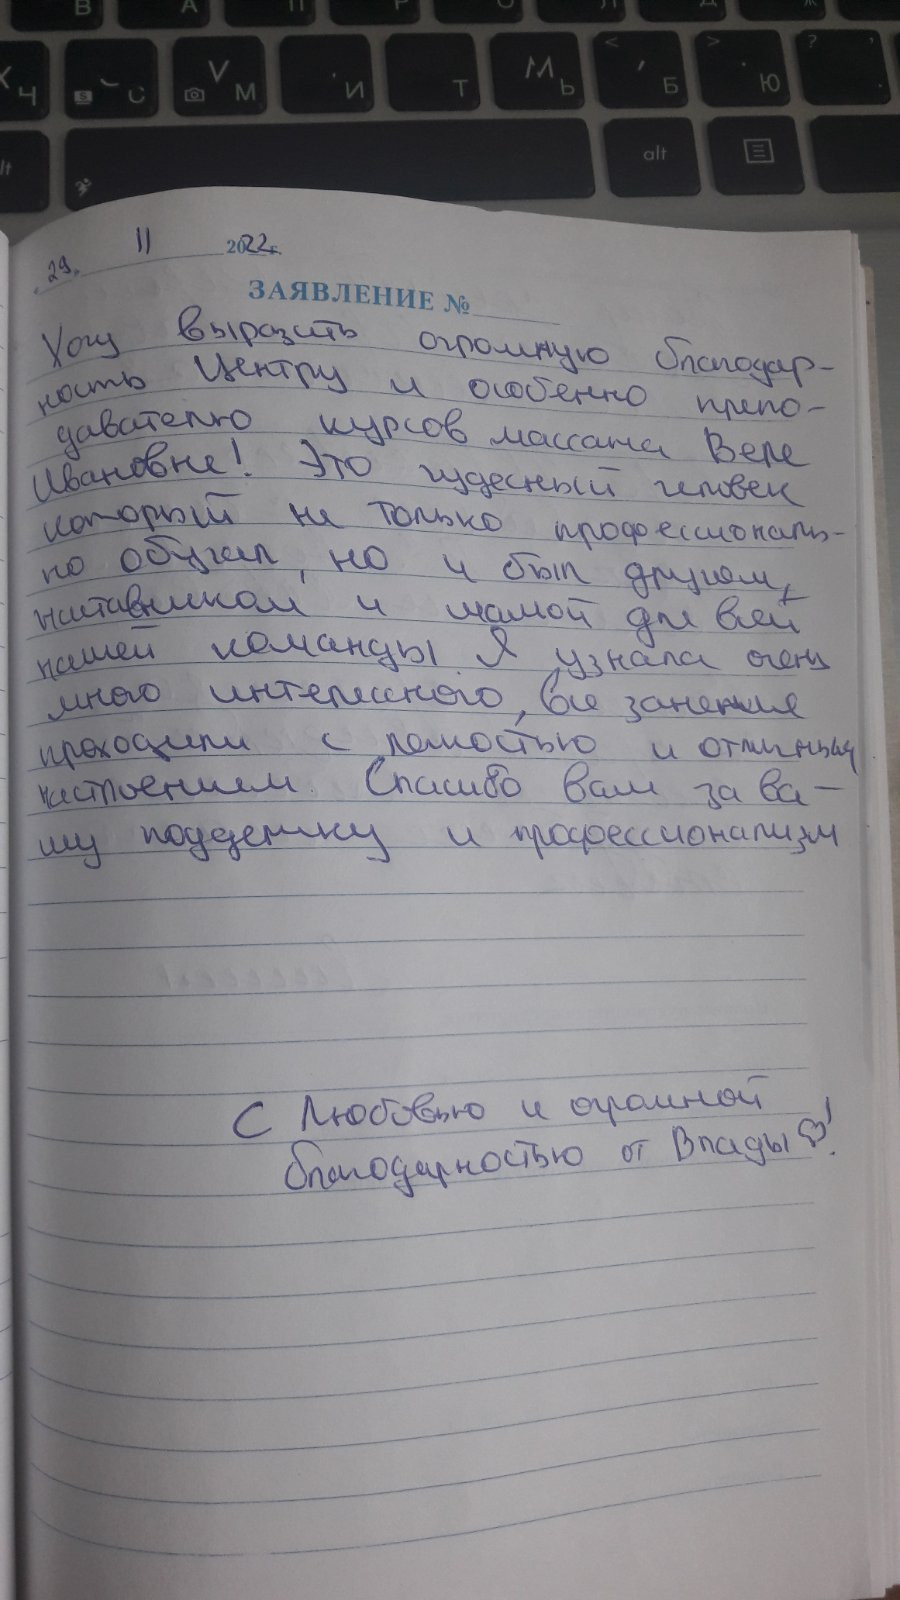 В А П Р О Л Д Ж
Ч S С V М И Т М Ь < , Б > . Ю ? ,
alt
29. 11 2022г.
ЗАЯВЛЕНИЕ №
Хочу выразить огромную благодар-
ность Центру и особенно препо-
давателю курсов массажа Вере
Ивановне! Это чудесный человек
который не только профессиональ-
но обучал, но и был другом,
наставником и мамой для всей
нашей команды Я узнала очень
много интересного, все занятия
проходили с легкостью и отличным
настроением. Спасибо вам за ва-
шу поддержку и профессионализм
С Любовью и огромной
благодарностью от Влады♡!